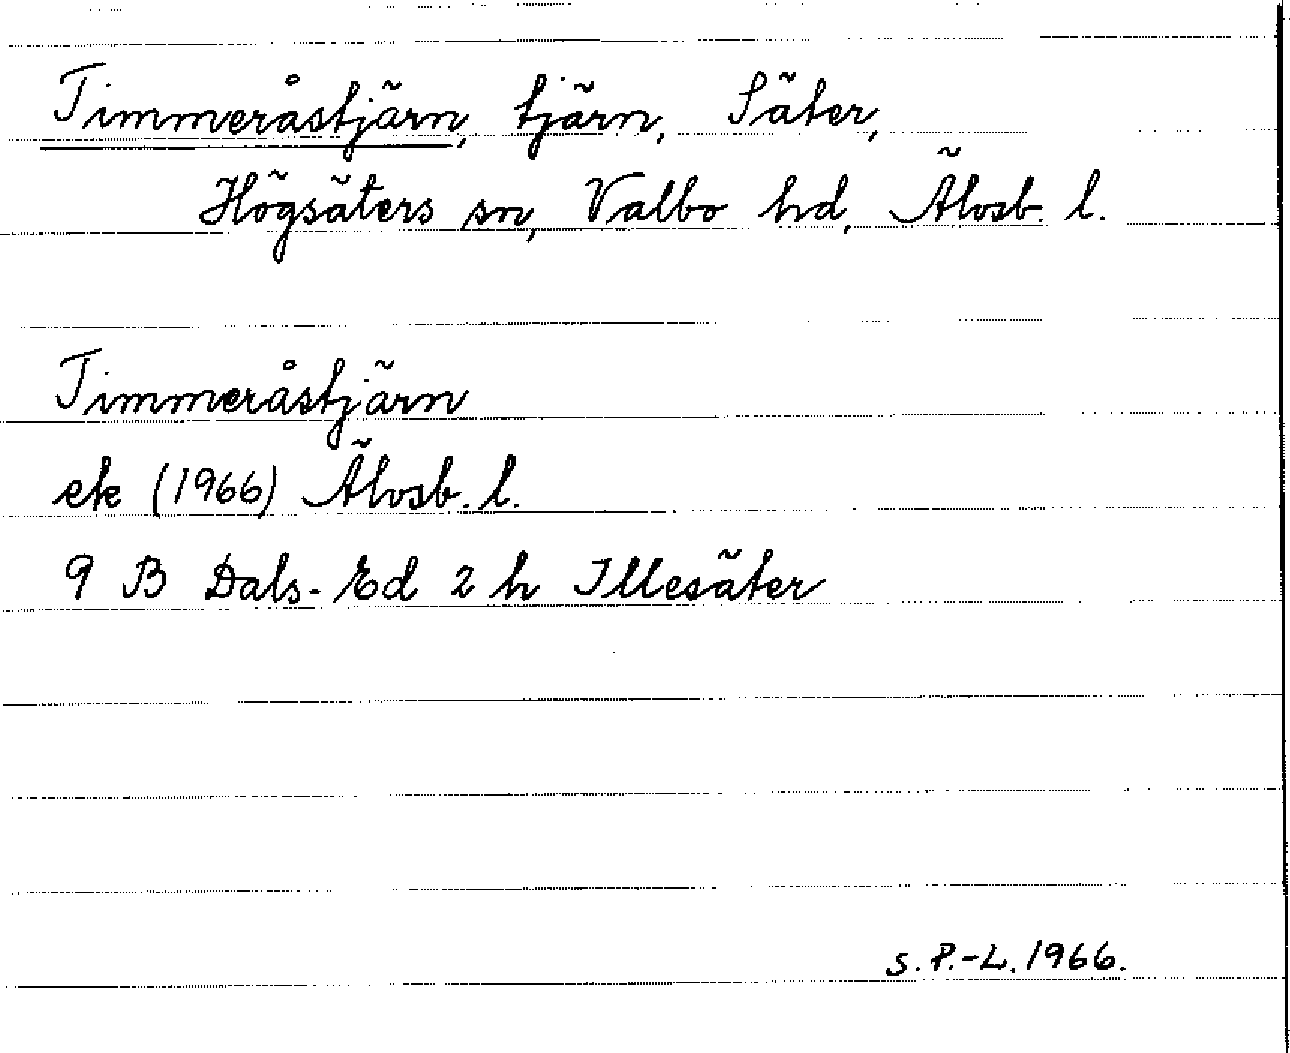 Timmeråstjärn, tjärn, Säter,
Högsäters sn, Valbo hd, Älvsb. l.
Timmeråstjärn
ek (1966) Älvsb. l.
9 B Dals-Ed 2 h Illesäter
S. P.-L. 1966.